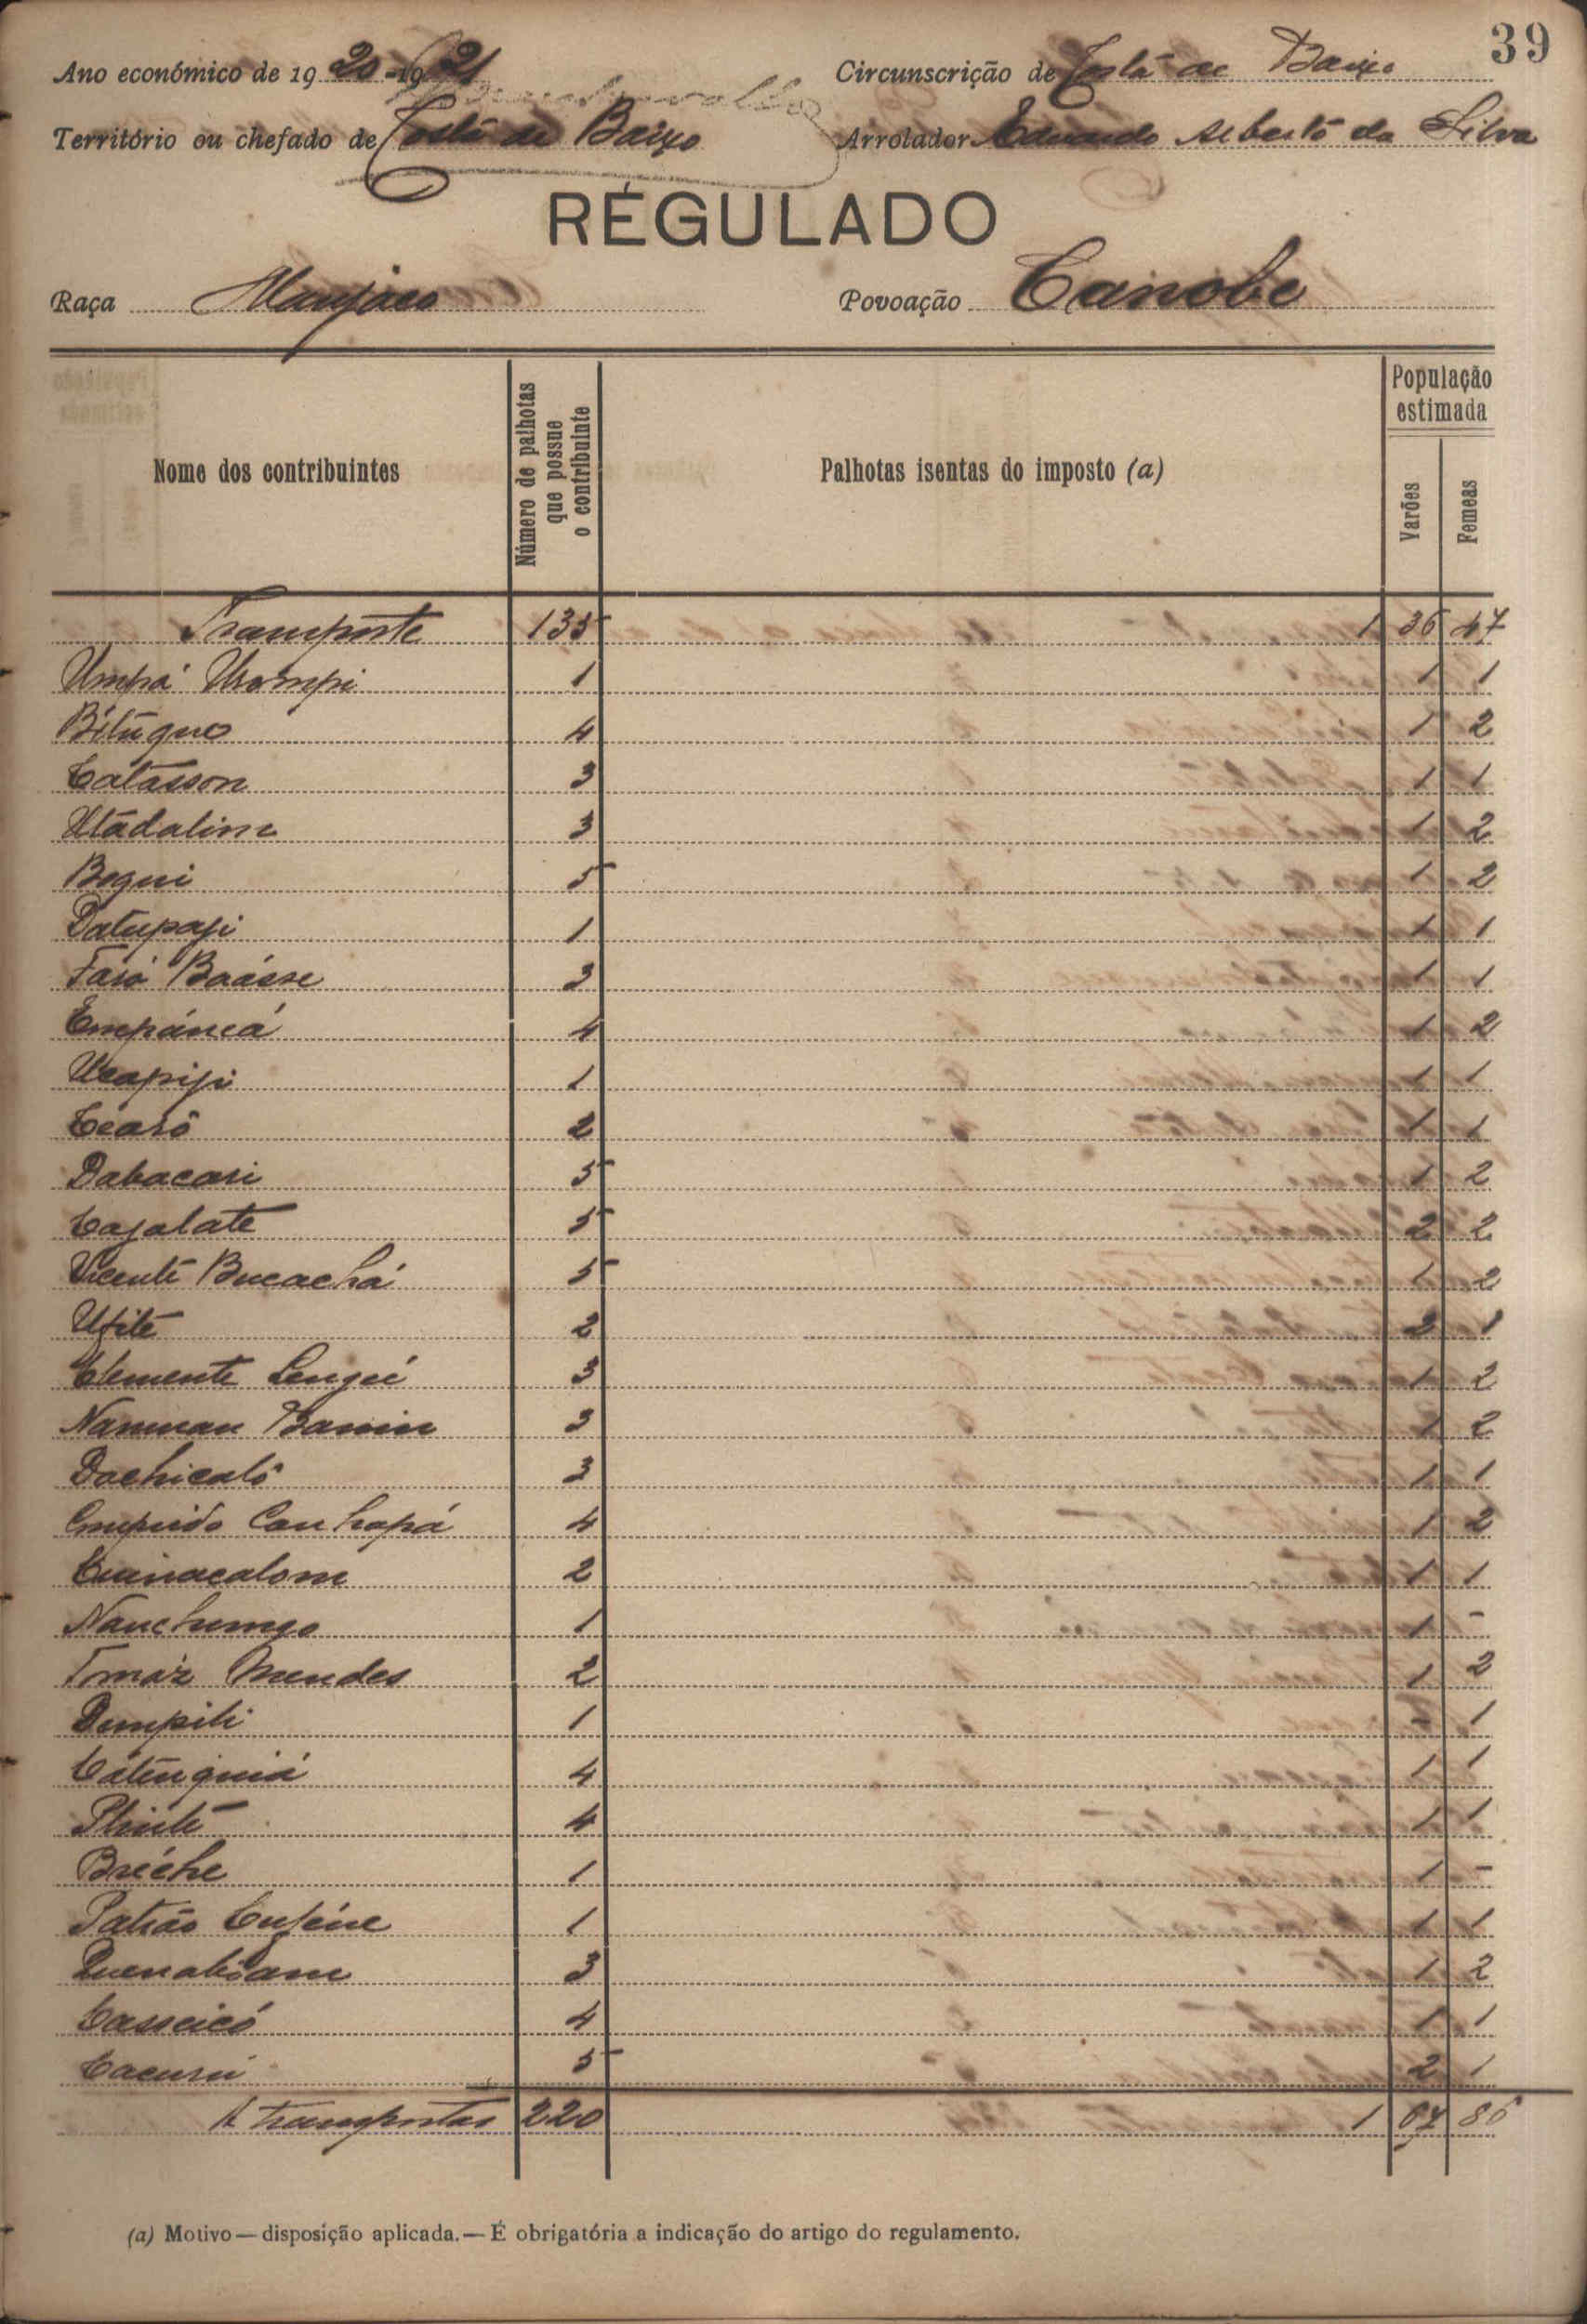 39
Ano económico de 1920-1921 Circunscrição de Costa de Baixo
Território ou chefado de Costa de Baixo Arrolador Eduardo Alberto da Silva
RÉGULADO
Raça Manjaco Povoação Canobe
Nome dos contribuintes
Número de palhotas que possue o contribuinte
Palhotas isentas do imposto (a)
População estimada
Varões
Femeas
Transporte 135 1 36 47
Umpá 1 1 1
Bitúgue 4 1 2
Catasson 3 1 1
Utádalim 3 1 2
Boqui 5 1 2
Datupaji 1 1 1
Fará Baásse 3 1 1
Empáncá 4 1 2
Ucapiji 1 1 1
Ceasó 2 1 1
Dabacari 5 1 2
Cajalate 5 2 2
Vicente Bucachá 5 1 2
Ufite 2 2 1
Clemente Lengué 3 1 2
Naman Bamin 3 1 2
Dachicaló 3 1 1
Canhapá 4 1 2
Cuinacalom 2 1 1
Nanchumgo 1 1 -
Tomáz Mendes 2 1 2
Dumpili 1 - 1
Catenguiá 4 1 1
4 1 1
Bréche 1 1 -
Patrão 1 1 1
Quenabiam 3 1 2
Casseicó 4 1 1
Cacusui 5 2 1
A transportar 220 1 67 86
(a) Motivo — disposição aplicada. — É obrigatória a indicação do artigo do regulamento.